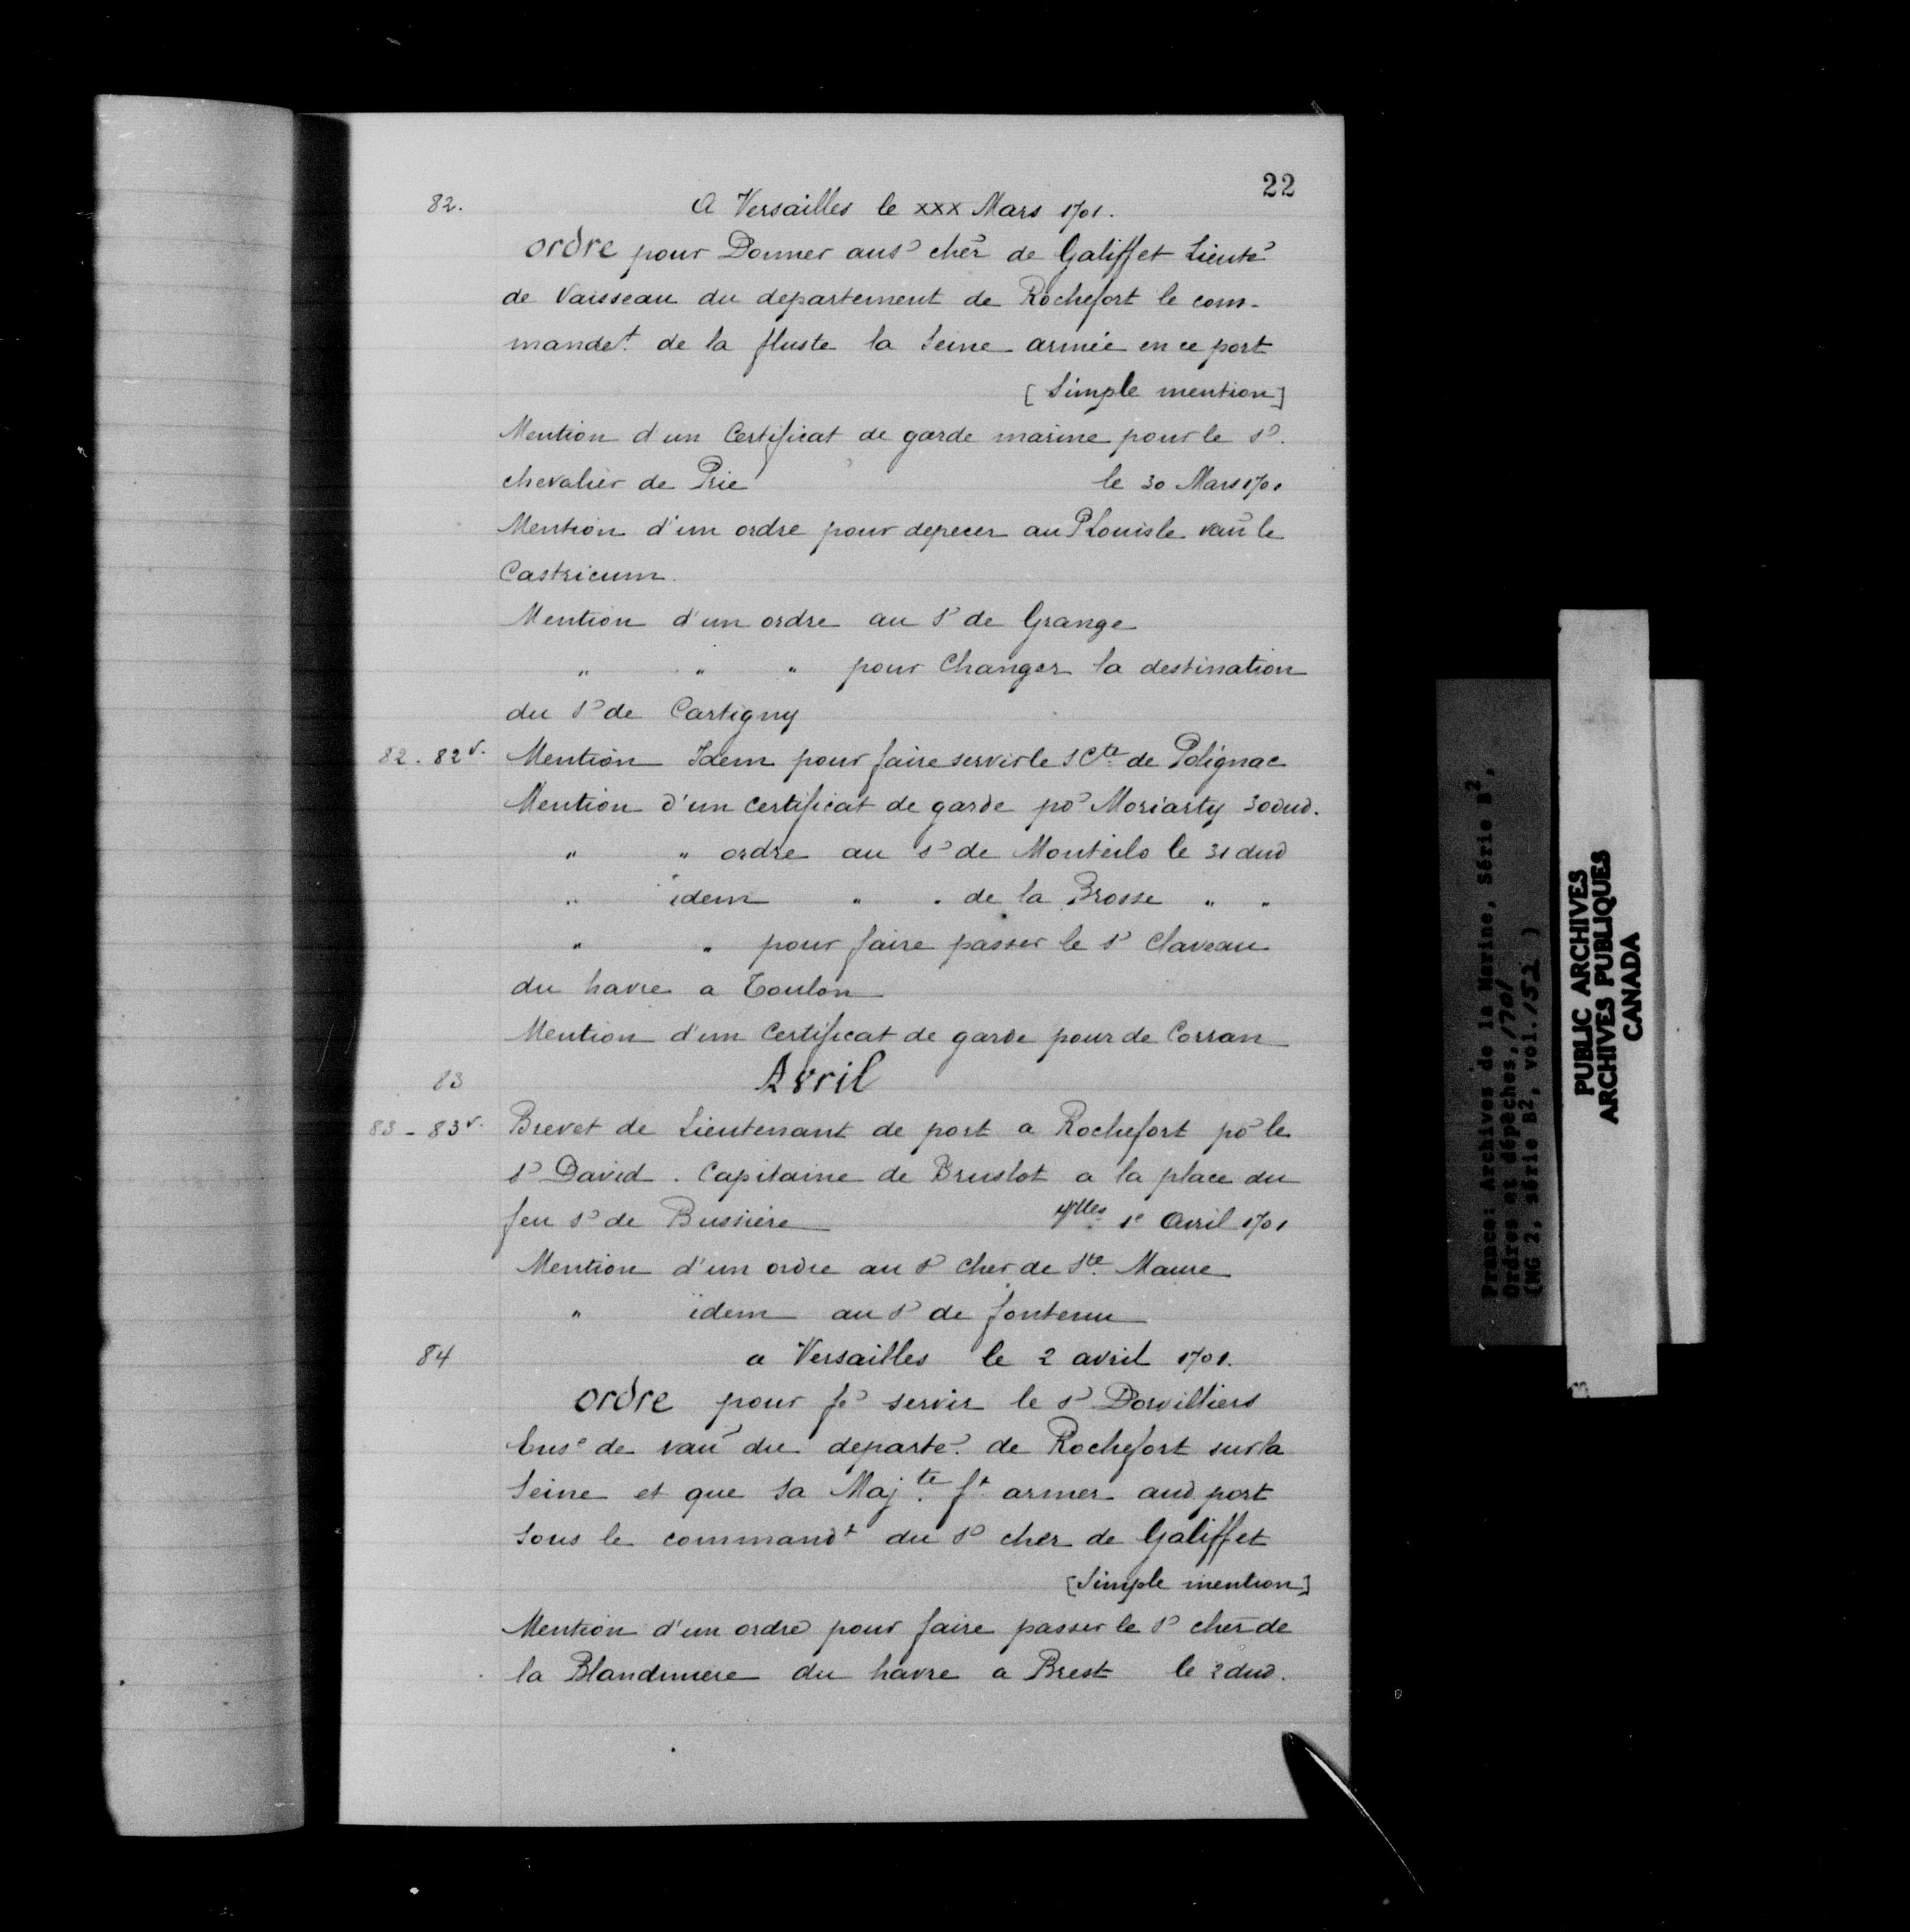 22
82. A Versailles le xxx Mars 1701.
ordre pour Donner au sr cher de Galiffet Lieutt
de Vaisseau du departement de Rochefort le com-
mandet. de la fluste la Seine armée en ce port
[Simple mention]
Mention d'un Certificat de garde marine pour le sr.
chevalier de Prie le 30 Mars 1701
Mention d'un ordre pour depecer au PLouis le vau le
Castricum.
Mention d'un ordre au sr de Grange
" " " pour Changer la destination
du sr de Cartigny
82. 82v. Mention Idem pour faire servir le s Cte de Polignac
Mention d'un certificat de garde pr Moriarty 30 dud.
" " ordre au sr de Monteils le 31 dud
" idem " " de la Brosse " "
" " pour faire passer le sr Claveau
du havre a Toulon
Mention d'un Certificat de garde pour de Corran
83 Avril
83 - 83v. Brevet de Lieutenant de port a Rochefort pr le
sr David. Capitaine de Bruslot a la place du
feu sr de Bussiere Vlles 1e Avril 1701
Mention d'un ordre au sr cher de Ste. Maure
" idem au sr de fontenu
84 a Versailles le 2 avril 1701.
ordre pour fe servir le sr Dorvilliers
Ense de vau du departe. de Rochefort sur la
Seine et que Sa Maj.te ft armer aud. port
sous le commandt du sr cher de Galiffet
[Simple mention]
Mention d'un ordre pour faire passer le sr cher de
la Blandiniere du havre a Brest le 2 dud.
France: Archives de la Marine, Série B2,
Ordres et dépêches, 1701
(MG 2, série B2, vol. 152 )
PUBLIC ARCHIVES
ARCHIVES PUBLIQUES
CANADA